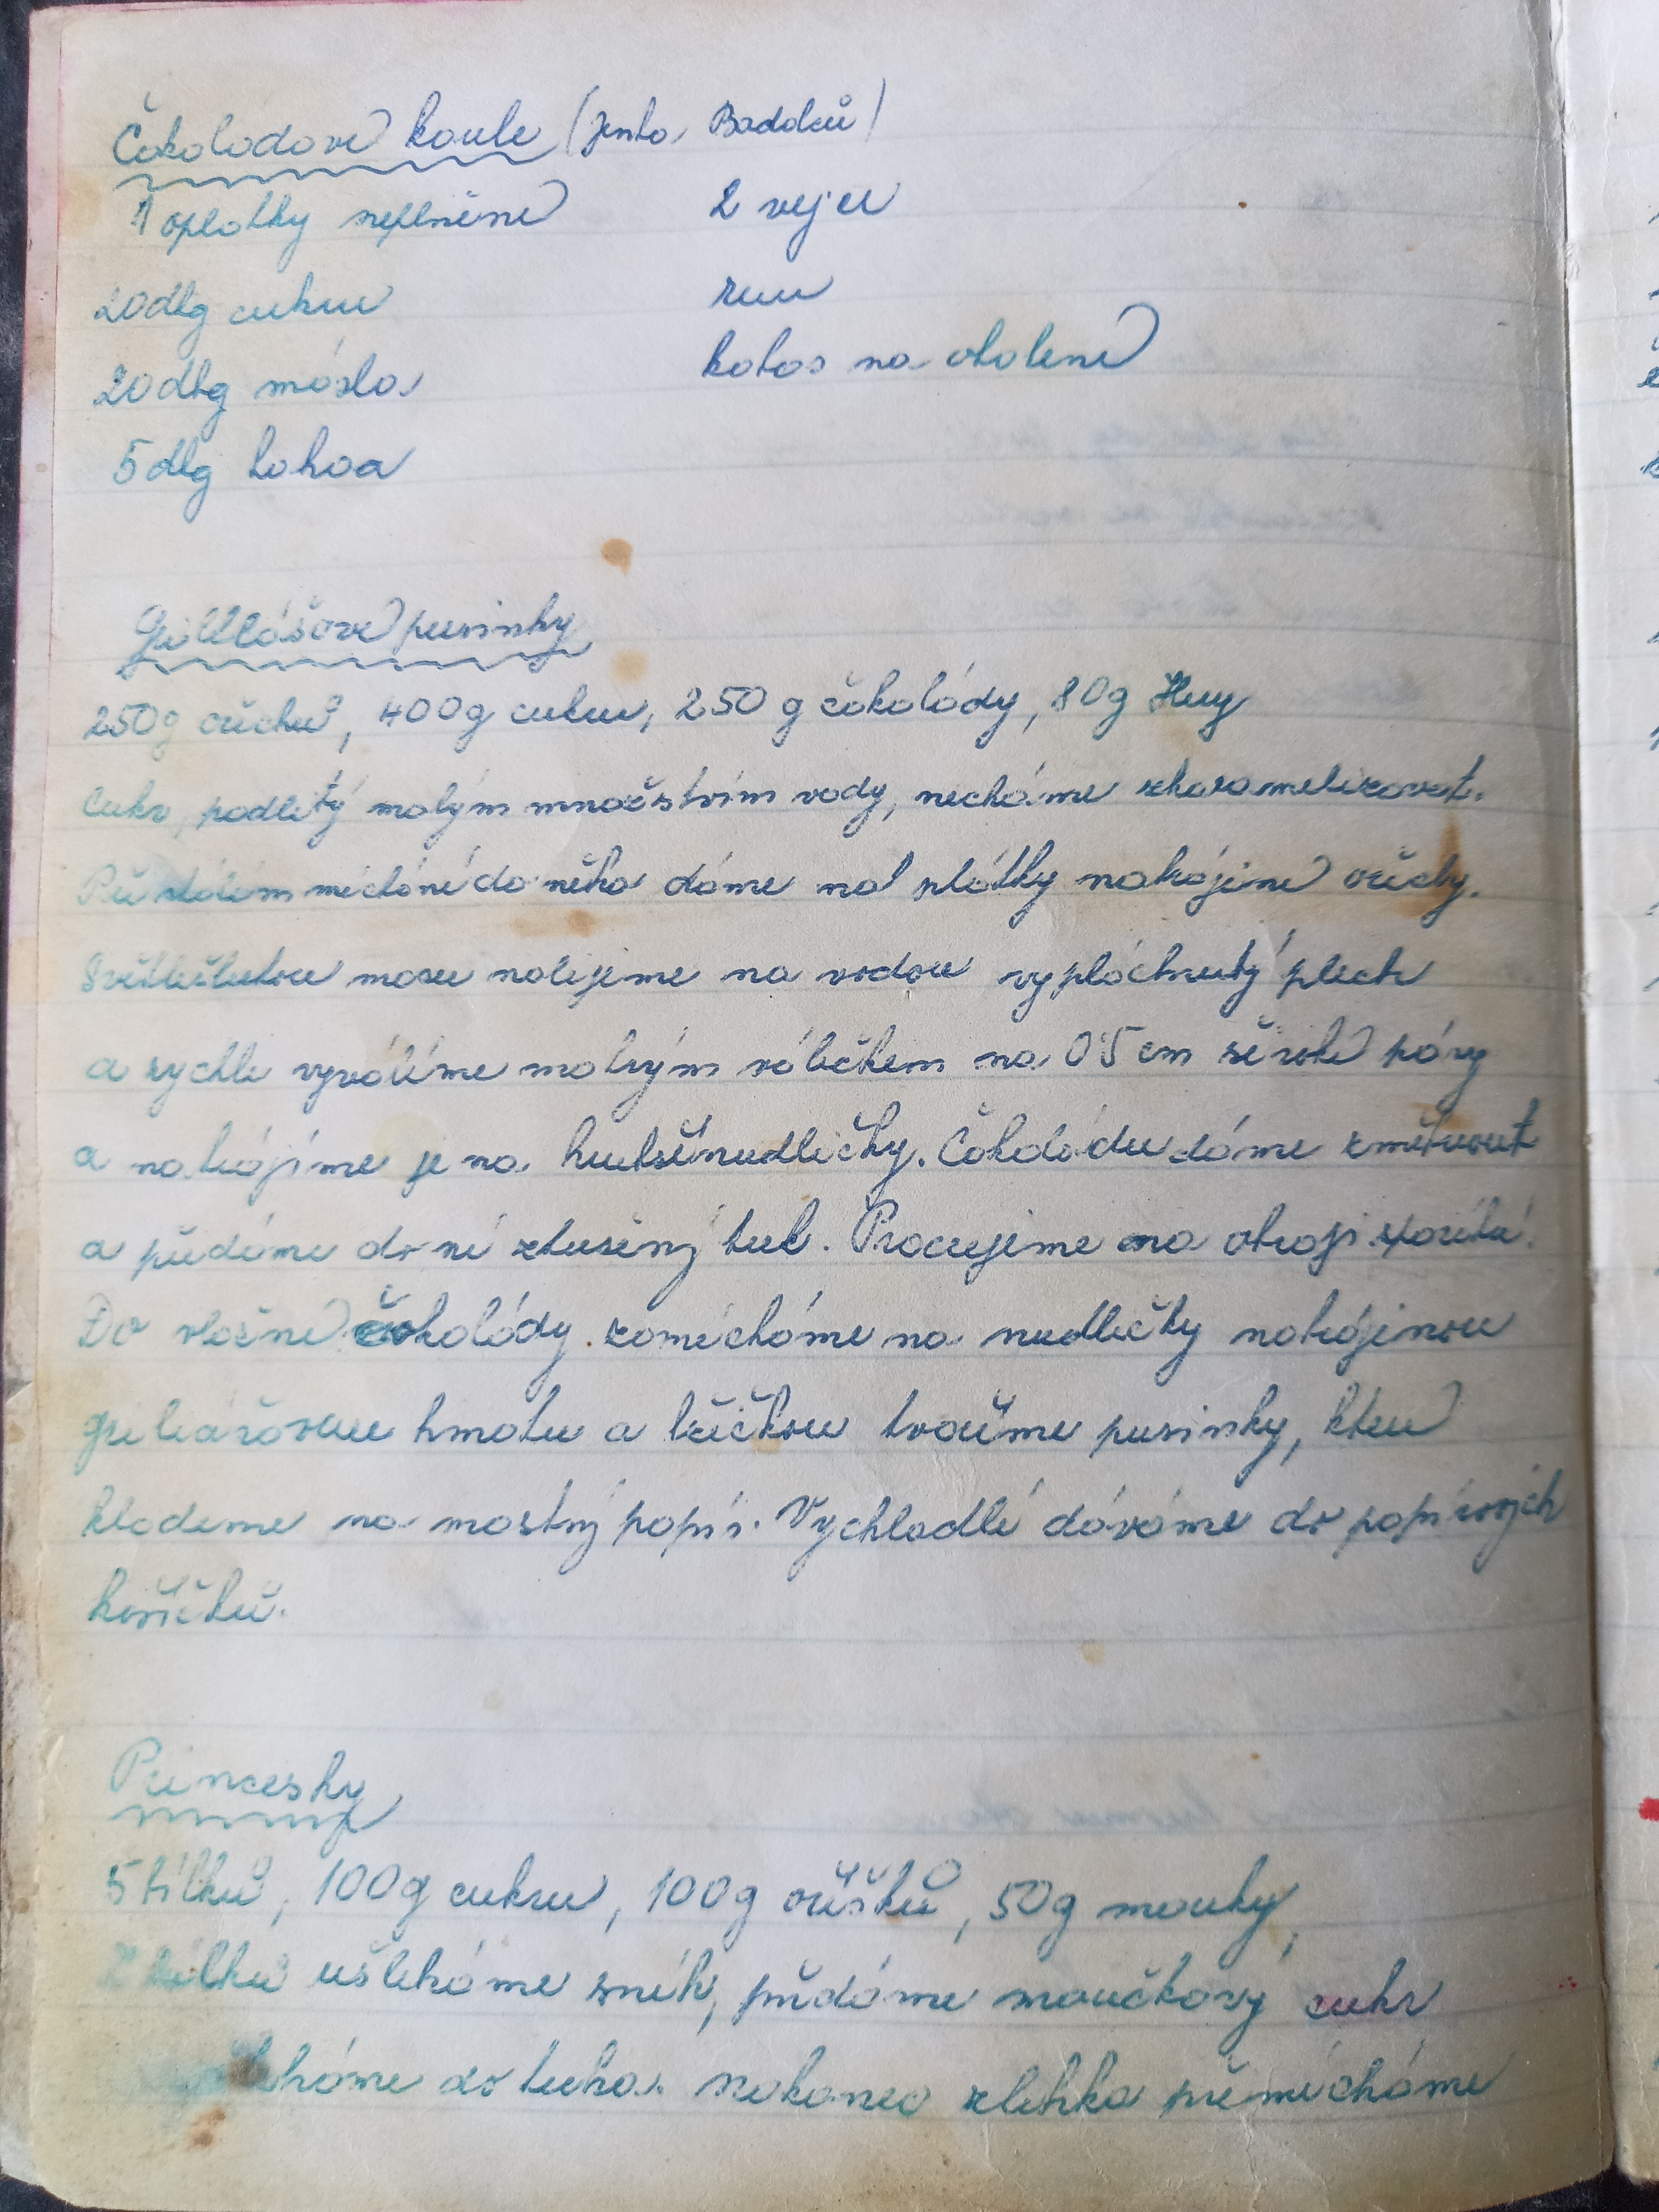 Čokoládové koule (Jenta Badalců)
1 oplatky neplněné 2 vejce
20 dkg cukru rum
20 dkg másla kokos na obalení
5 dkg kakaa
Griliášové pusinky
250g ořechů, 400g cukru, 250 g čokolády, 80g Hery
Cukr, podlitý malým množstvím vody, necháme zkaramelizovat.
Při stálém míchání do něho dáme na plátky nakrájené ořechy.
Světležlutou masu nalejeme na vodou vypláchnutý plech
a rychle vyválíme malým válečkem na 0'5 cm široké pásy
a nakrájíme je na krátké nudličky. Čokoládu dáme změknout
a přidáme do ní ztužený tuk. Pracujeme na okraji sporáku.
Do vlažné čokolády zamícháme na nudličky nakrájenou
griliášovou hmotu a lžičkou tvoříme pusinky, které
klademe na mastný papír. Vychladlé dáváme do papírových
košíčků.
Princesky
5 bílků, 100g cukru, 100g oříšků, 50g mouky,
Z bílků ušleháme sníh, přidáme moučkový cukr
do tuha. Nakonec zlehka přimícháme